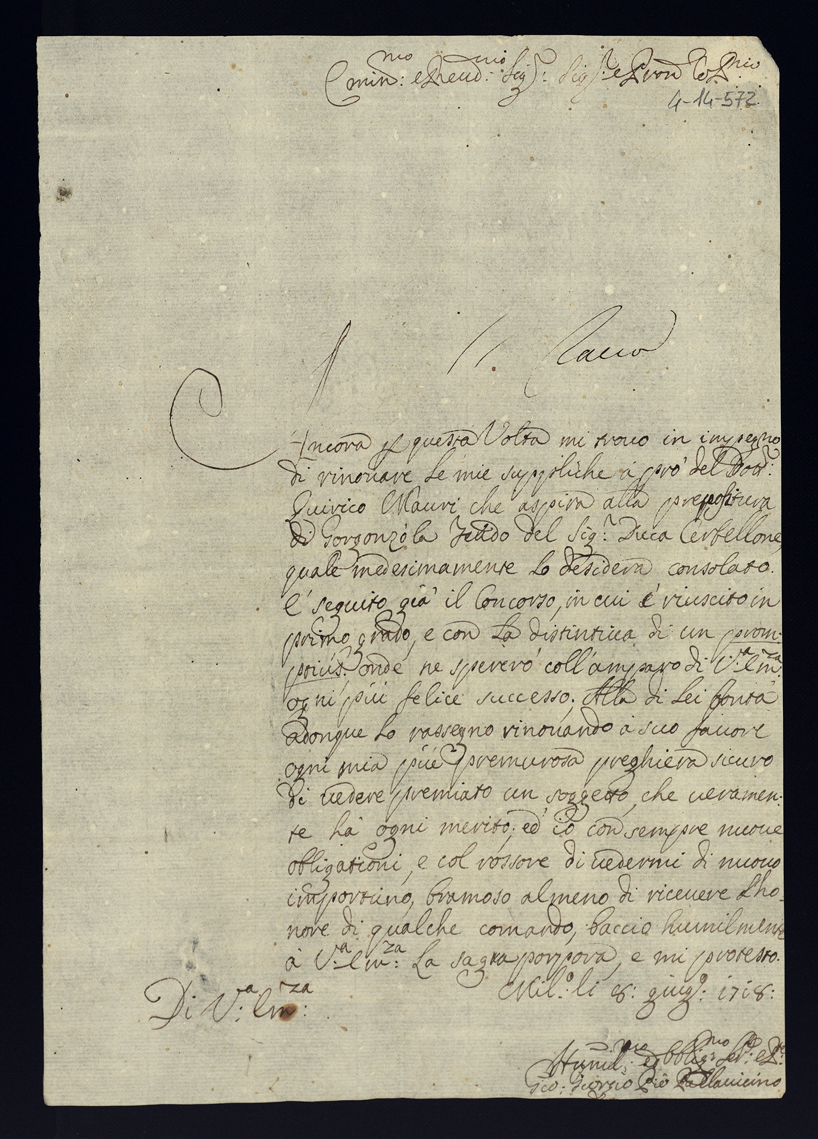 Emin: mo e Reud: mo Sig: Sig: e Pron Col: mo
4-14-572
Ancora p questa Volta mi trovo in impegno
di rinouare le mie suppliche à prò del Dott:
Quirico Mauri che aspira alla prepositura
di Gorgonzola feudo del Sig: Duca Cerbellone,
quale medesimamente lo desidera consolato.
E' seguito già il Concorso, in cui è riuscito in
primo grado, e con la distintiua di un prom-
ptius: onde ne sperero coll'amparo di V:a Em:za
ogni più felice successo. Alla di Lei bontà
adonque lo rassegno rinouando à suo fauore
ogni mia più premurosa preghiera sicuro
di uedere premiato un soggetto, che ueramen-
te hà ogni merito; ed' io con sempre nuoue
obligationi, e col rossore di uedermi di nuouo
importuno, bramoso almeno di riceuere L'ho-
nore di qualche comando, baccio humilmente
à V:a Em:za La sagra porpora, e mi protesto.
Mil:o li 8: giug:o 1718:
Di V:a Em:za
Humil:mo ed oblig:mo Ser:
Gio: Giorgio Pio Pallauicino